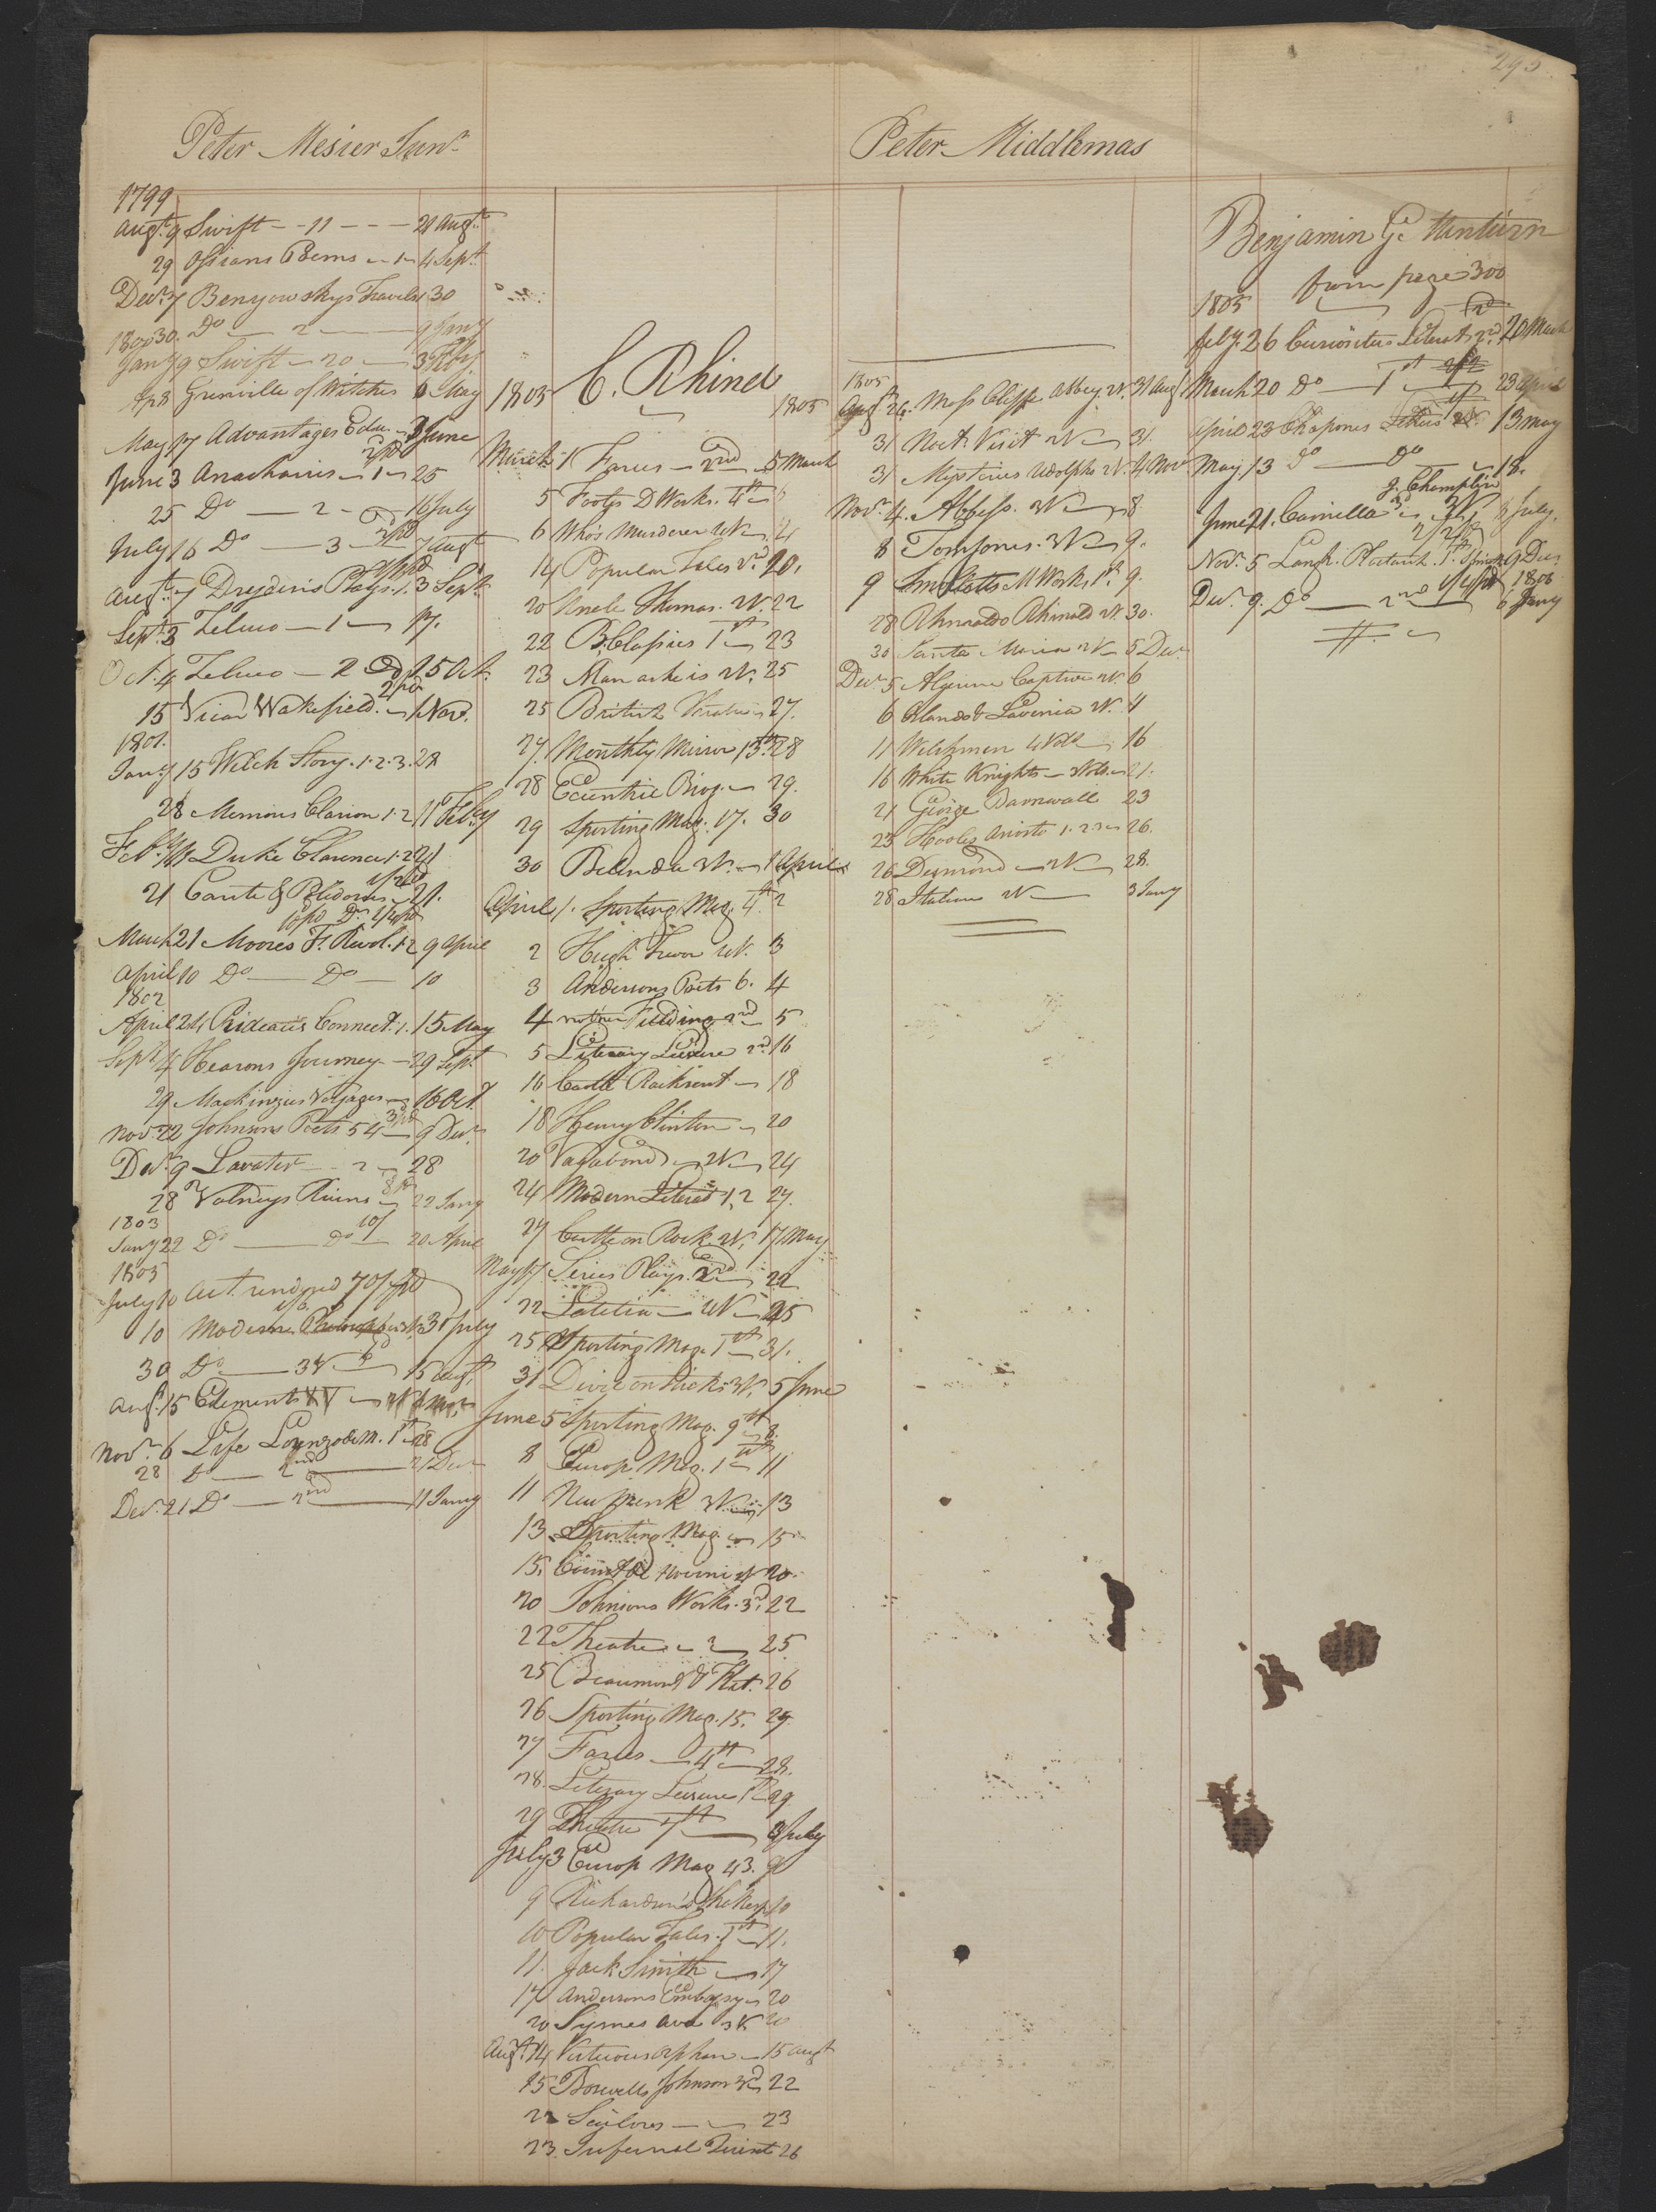 295
Peter Mesier Junr
1799
Augt. 9 Swift - - 11 - - - 21 Augt.
29 Ossians Poems - 1 - 4 Sept
Decr. 7 Benyowskys Travels 1 30
1800 30. Do - 2 - 9 Jany
Jany 9 Swift - 20 - 3 Feby
Ap 8 Grenville of Witches 6 May
May 17 Advantages Edu. 3 June
June 3 Anacharsis - 1 - 25
25 Do - 2 - 16 July
July 16 Do - 3 - 7 Augt
Augt. 7 Drydens Plays. 1. 3 Sept.
Sept. 3 Zeluco - 1 - 17.
Oct. 4 Zeluco - 2 15 Oct.
15 Vicar Wakefield. - 1 Nov.
1801.
Jany 15 Welch Story. 1. 2. 3. 28
28 Memoirs Clarion 1. 2 11 Feby
Feby. 11 Duke Clarence 1. 2 21
21 21.
March 21 Moores F. Revol. 1. 2 9 April
April 10 Do - Do - 10
1802
April 24 Prideaux Connect. 1. 15 May
Sept 4 Hearons Journey - 29 Sept.
29 Mackinzies Voyages - 16 Oct.
Novr. 22 Johnsons Poets 54 - 9 Decr.
Decr. 9 Lavater - 2 - 28
28 Volneys Ruins - 22 Jany
1803
Jany 22 Do - Do - 20 April
1805
July 10 Act. rendered 70/ pd
10 Modern 31 July
30 Do - 3V - 15 Augt.
Aug. 15 Clements XIV
Novr. 6 Life Lorenzo de M. 1st 28
28 Do - 2nd - 21 Decr
Decr. 21 Do - 2nd - 11 Jany
C. Rhind
1805
March 1 Farces - 2nd - 5 March
5 Footes D Works. 4th 6
6 Who's Murderer 4V. 14
14 Popular Tales 2d. 20.
20 Uncle Thomas. 2V. 22
22 B. Classics 1st 23
23 Man as he is 2V. 25
25 British 27.
27. Monthly Mirror 13th 28
28 Eccentric Biog. 29.
29 Sporting Mag. 17. 30
30 Belinda 3V. - 1 April
April 1. Sporting Mag. 4th 2
2 Hugh Trevor 4V. 3
3 Andersons Poets 6. 4
4 Fielding 2nd 5
5 Literary Leisure 2nd 16
16 Castle Rackrent 18
18 Henry Clinton 20
20 Vagabond 2V 24
24 Modern Literat 1, 2 27.
27 Castle on Rock 2V. 17 May
May 17 Series Plays 2nd 22
22 Letitia 4V 25
25 Sporting Mag. 1st 31.
31 Devil on Sticks 3V. 5 June
June 5 Sporting Mag. 9th 8.
8 Europ. Mag. 1 11
11 New Monk 3V. 13
13 Sporting Mag. 15
15. Count de 2V 20
20 Johnsons Works. 3d. 22
22 Theatre 2 25
25 Beaumont & Flet. 26
26 Sporting Mag. 15. 27.
27 Farces - 4th 28.
28. Literary Leisure 1st 29
29 Theatre 3 July
July 3 Europ Mag 43. 9
9 Richardson's Shakesp 10
10 Popular Tales. 1st 11.
11. Jack Smith 17
17 Andersons Embassy 20
20 Symes Ava 3V. 20
Augt. 14 Virtuous Orphan 15 Augt
15 Boswells Johnson 3d 22
22 Sailors - 23
23. Infernal Quixot 26
Peter Middlemas
1805 1805
Augt. 26. Moss Cliff Abbey 2V. 31 Aug
31 Noct. Visit 2V 31.
31 Mysteries Udolpho 2V. 4 Nov
Novr. 4. Abbess. 3V 8
8 Tom Jones. 3V 9.
9 Smolletts M Works, 1st. 9.
28 Rhinaldo Rhinald 2V. 30.
30 Santa Maria 2V 5 Decr.
Decr. 5 Algerine Captive 2V. 6
6 Orlando & Lavinia 2V. 11
11 Welchman 4 Vols 16
16 White Knights - 3 Vols. 21.
21 George Barnwall 23
23 Hooles Ariosto 1. 2. 3 26.
26 Desmond - 2V 28.
28 Italian 2V - 3 Jany
Benjamin G. Minturn
from page 300
1805
feby. 26 Curiosities Literat. 2nd. 20 March
March 20 Do - 1st 23 April
April 23 Chapones Letters 13 May
May 13 Do - Do - 18.
J. Champlin
June 21. Camilla 6 July.
Novr. 5 Langh. Plutarch. 1st. 9 Decr.
1806
Decr. 9. Do - 2nd 6 Jany